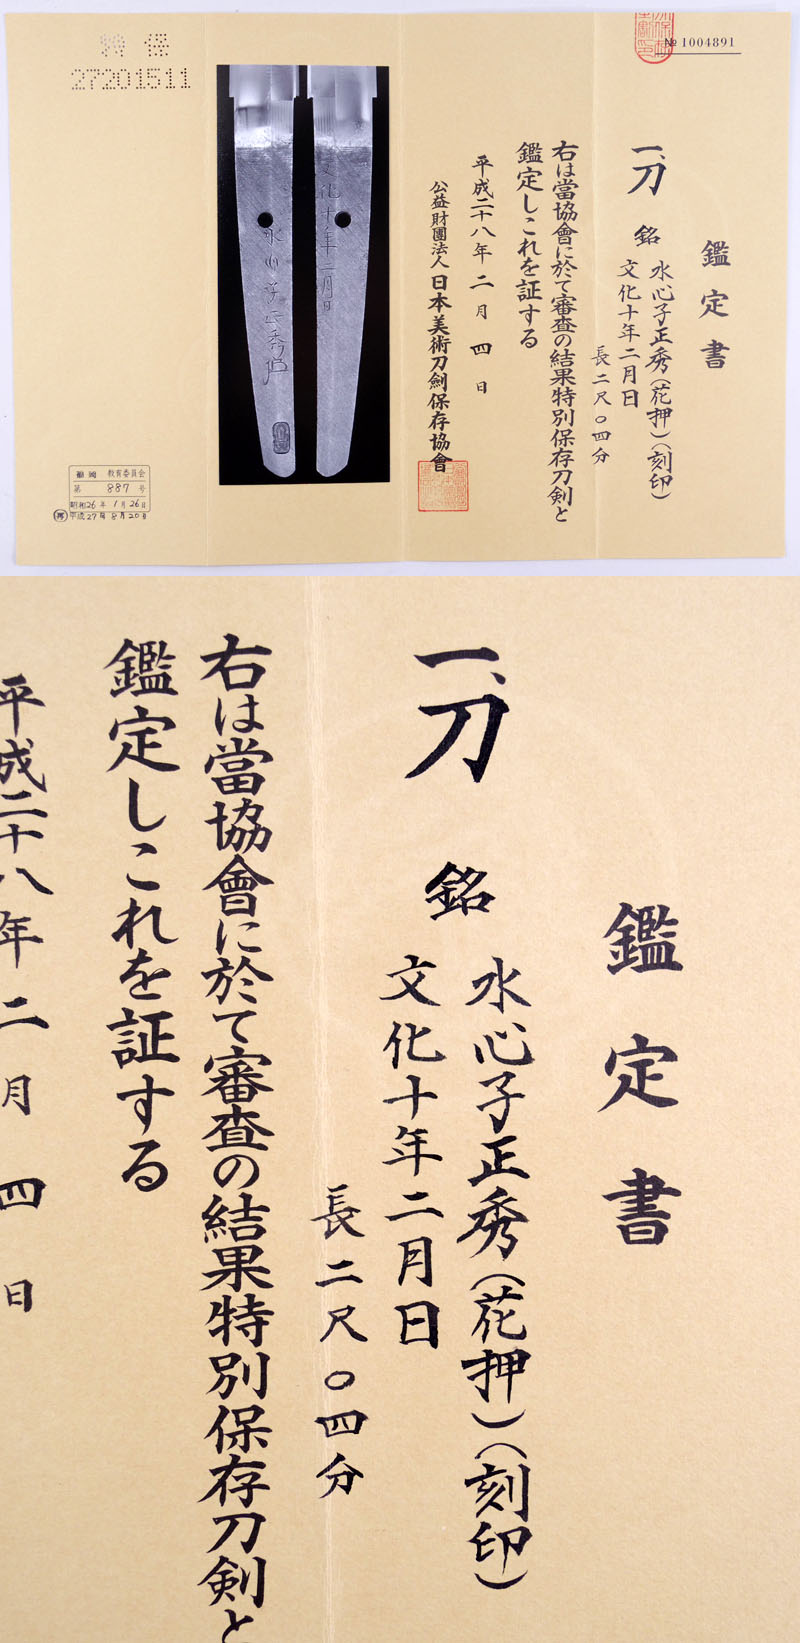 № 1004891
鑑定書
一、刀 銘 水心子正秀(花押)(刻印)
文化十年二月日
長二尺〇四分
右は當協會に於て審査の結果特別保存刀剣と
鑑定しこれを証する
平成二十八年二月四日
公益財團法人日本美術刀劍保存協會
文化十年二月日
水心子正秀
特保
27201511
福岡 教育委員会
第 887 号
昭和26年1月26日
平成27年8月20日
鑑定書
一、刀 銘 水心子正秀(花押)(刻印)
文化十年二月日
長二尺〇四分
右は當協會に於て審査の結果特別保存刀剣と
鑑定しこれを証する
平成二十八年二月四日